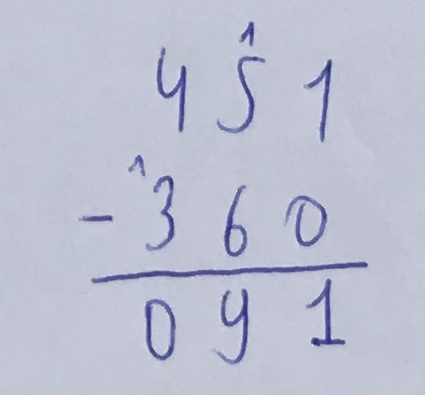 1
4 5 1
1
- 3 6 0
0 9 1